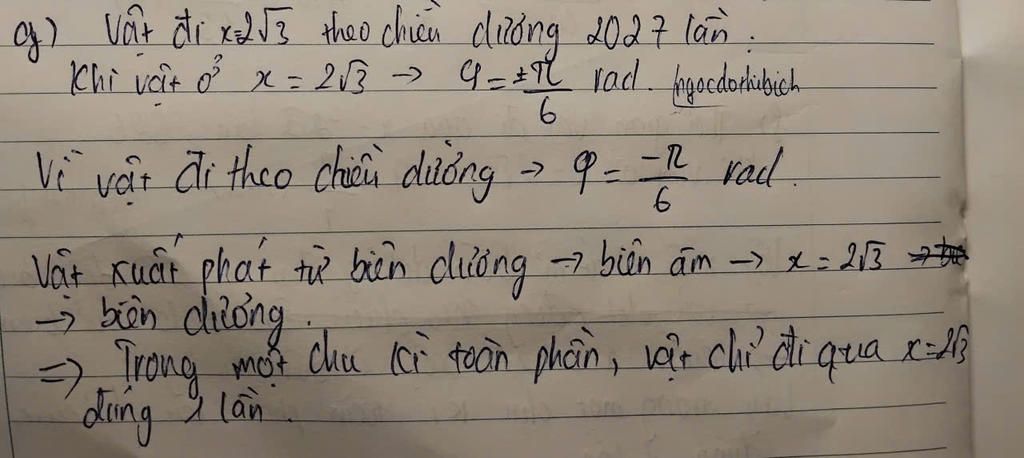 g) Vật đi x=2√3 theo chiều dương 2027 lần.
Khi vật ở x = 2√3 → φ = ±π/6 rad. ngocdothibich
Vì vật đi theo chiều dương → φ = -π/6 rad.
Vật xuất phát từ biên dương → biên âm → x = 2√3
→ biên dương.
=> Trong một chu kì toàn phần, vật chỉ đi qua x=2√3
đúng 1 lần.